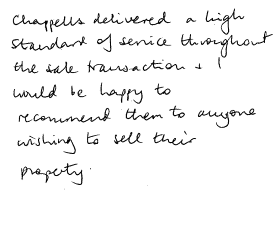 Chappells delivered a high
standard of service throughout
the sale transaction + I
would be happy to
recommend them to anyone
wishing to sell their
property.